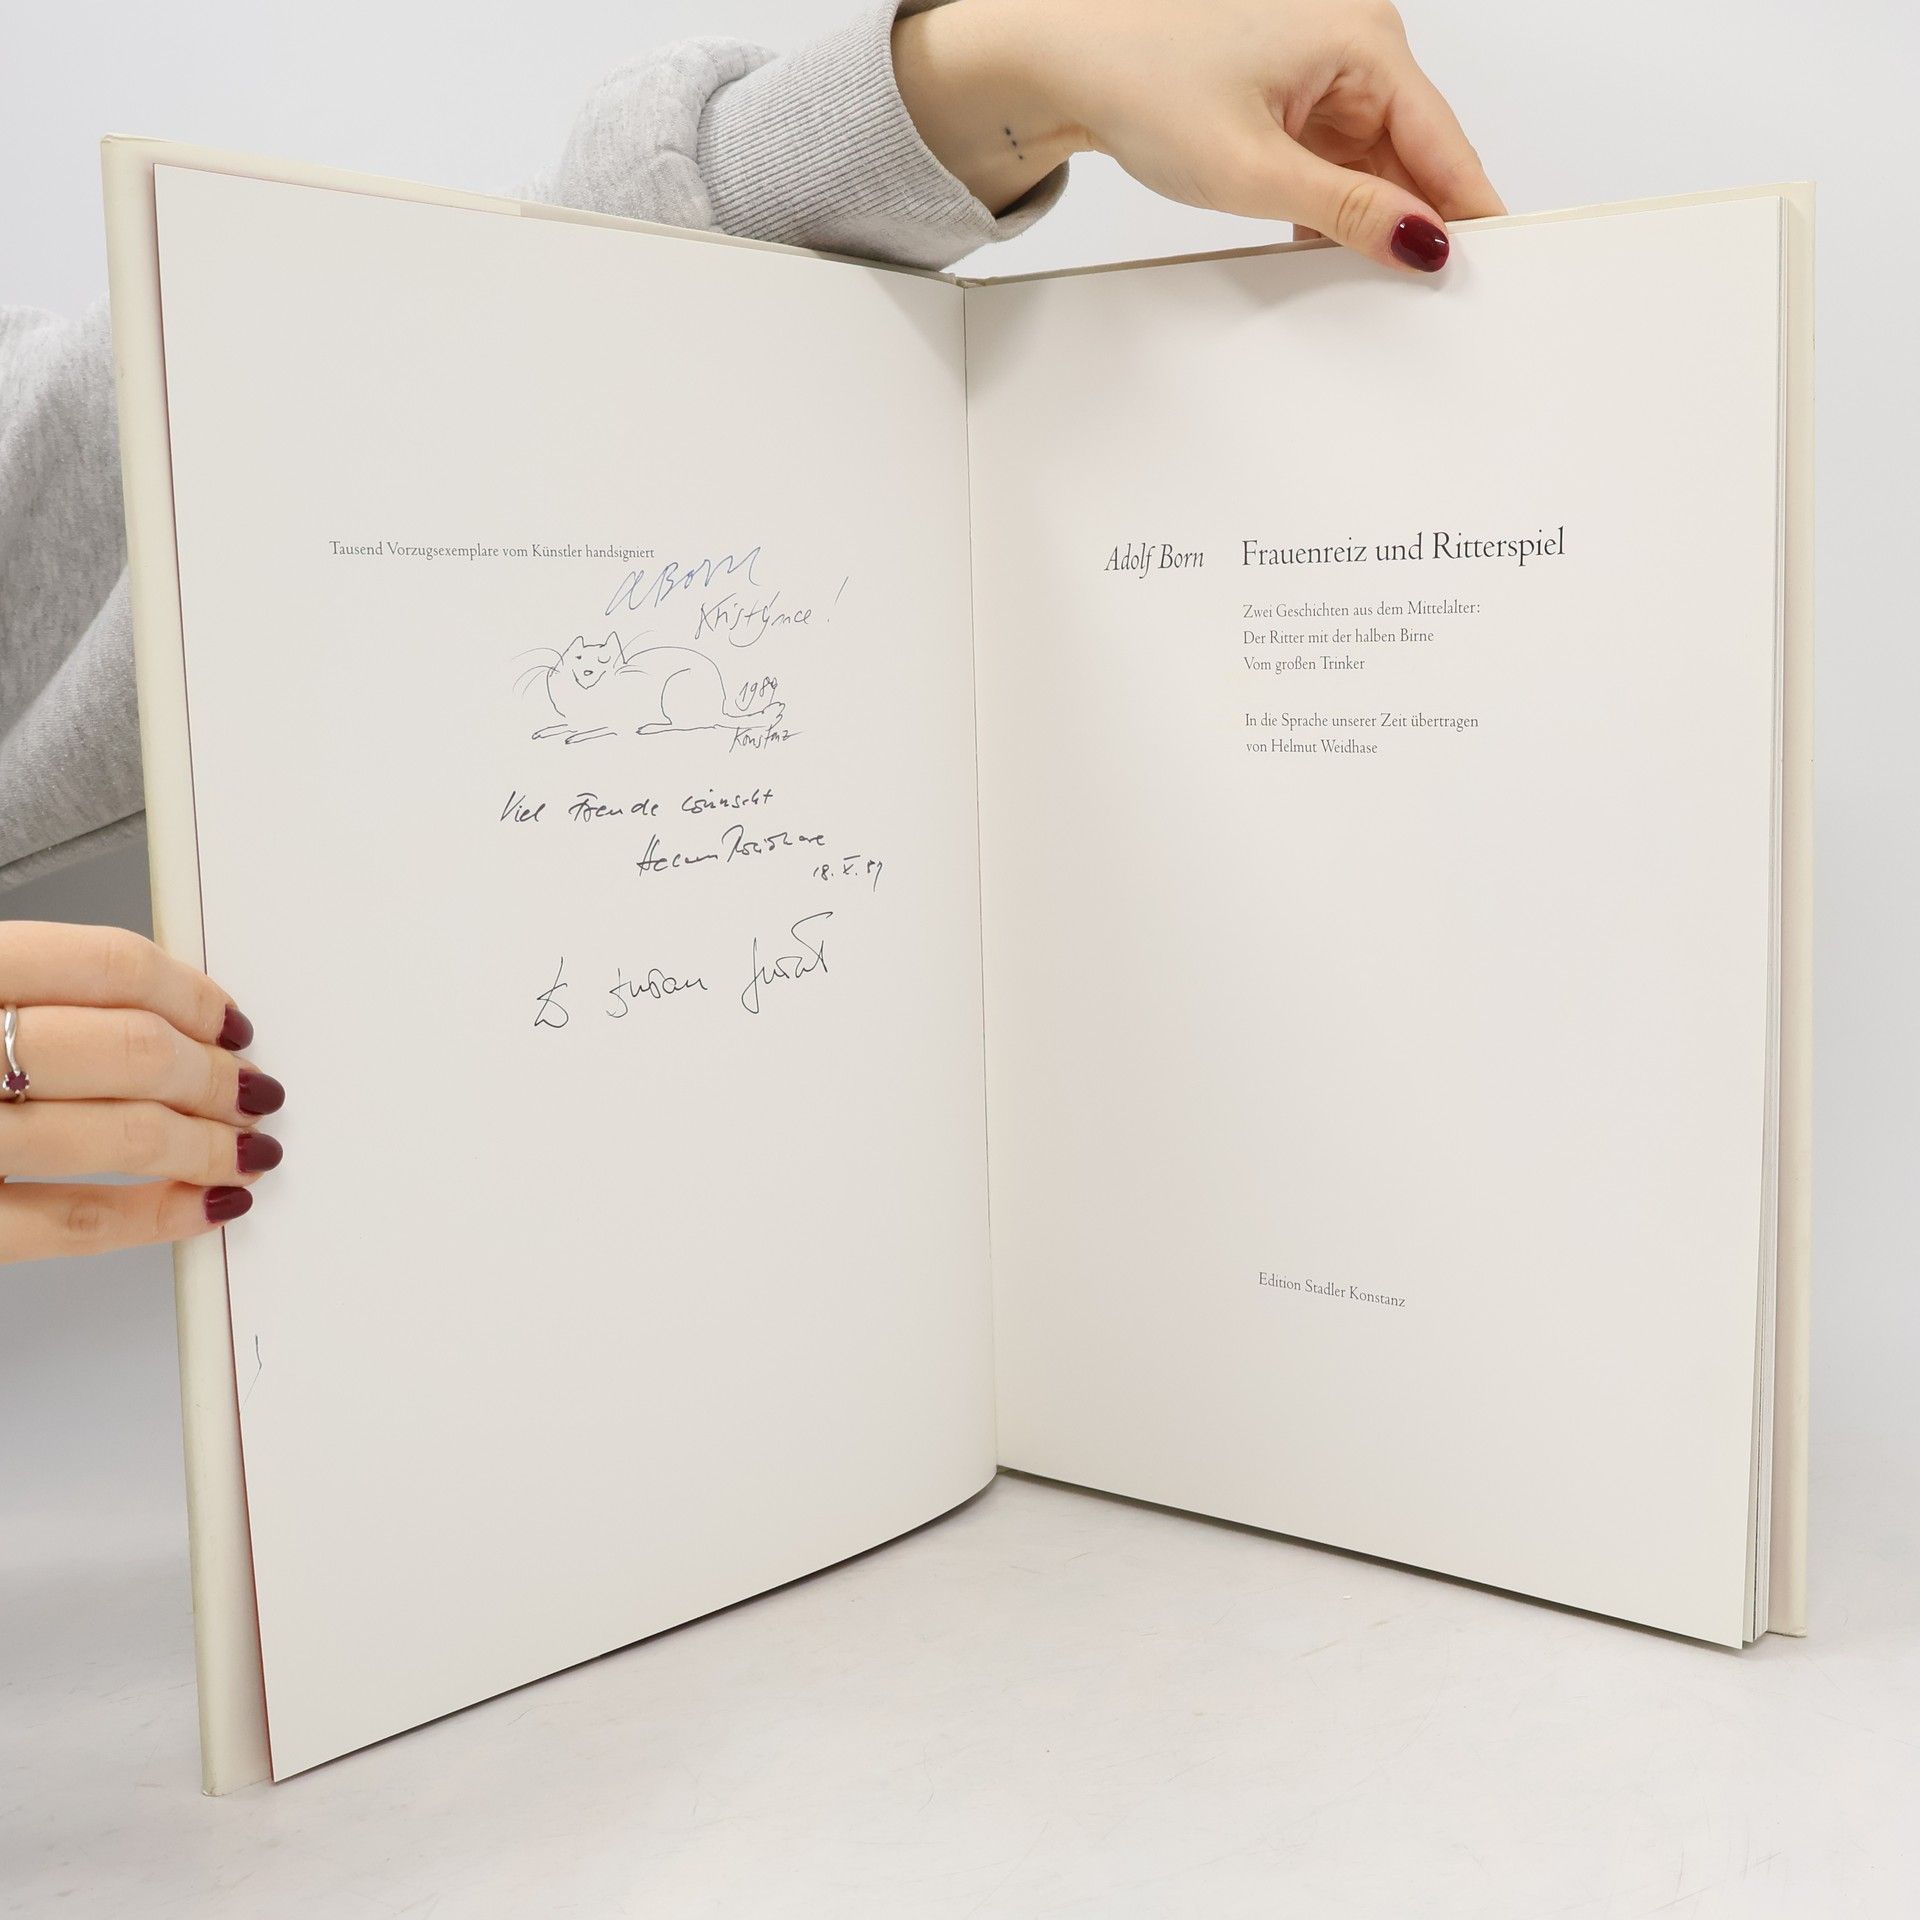 Tausend Vorzugsexemplare vom Künstler handsigniert
A BORN
Kristýnce!
1989
Konstanz
Viel Freude wünscht
18. X. 89
Adolf Born Frauenreiz und Ritterspiel
Zwei Geschichten aus dem Mittelalter:
Der Ritter mit der halben Birne
Vom großen Trinker
In die Sprache unserer Zeit übertragen
von Helmut Weidhase
Edition Stadler Konstanz